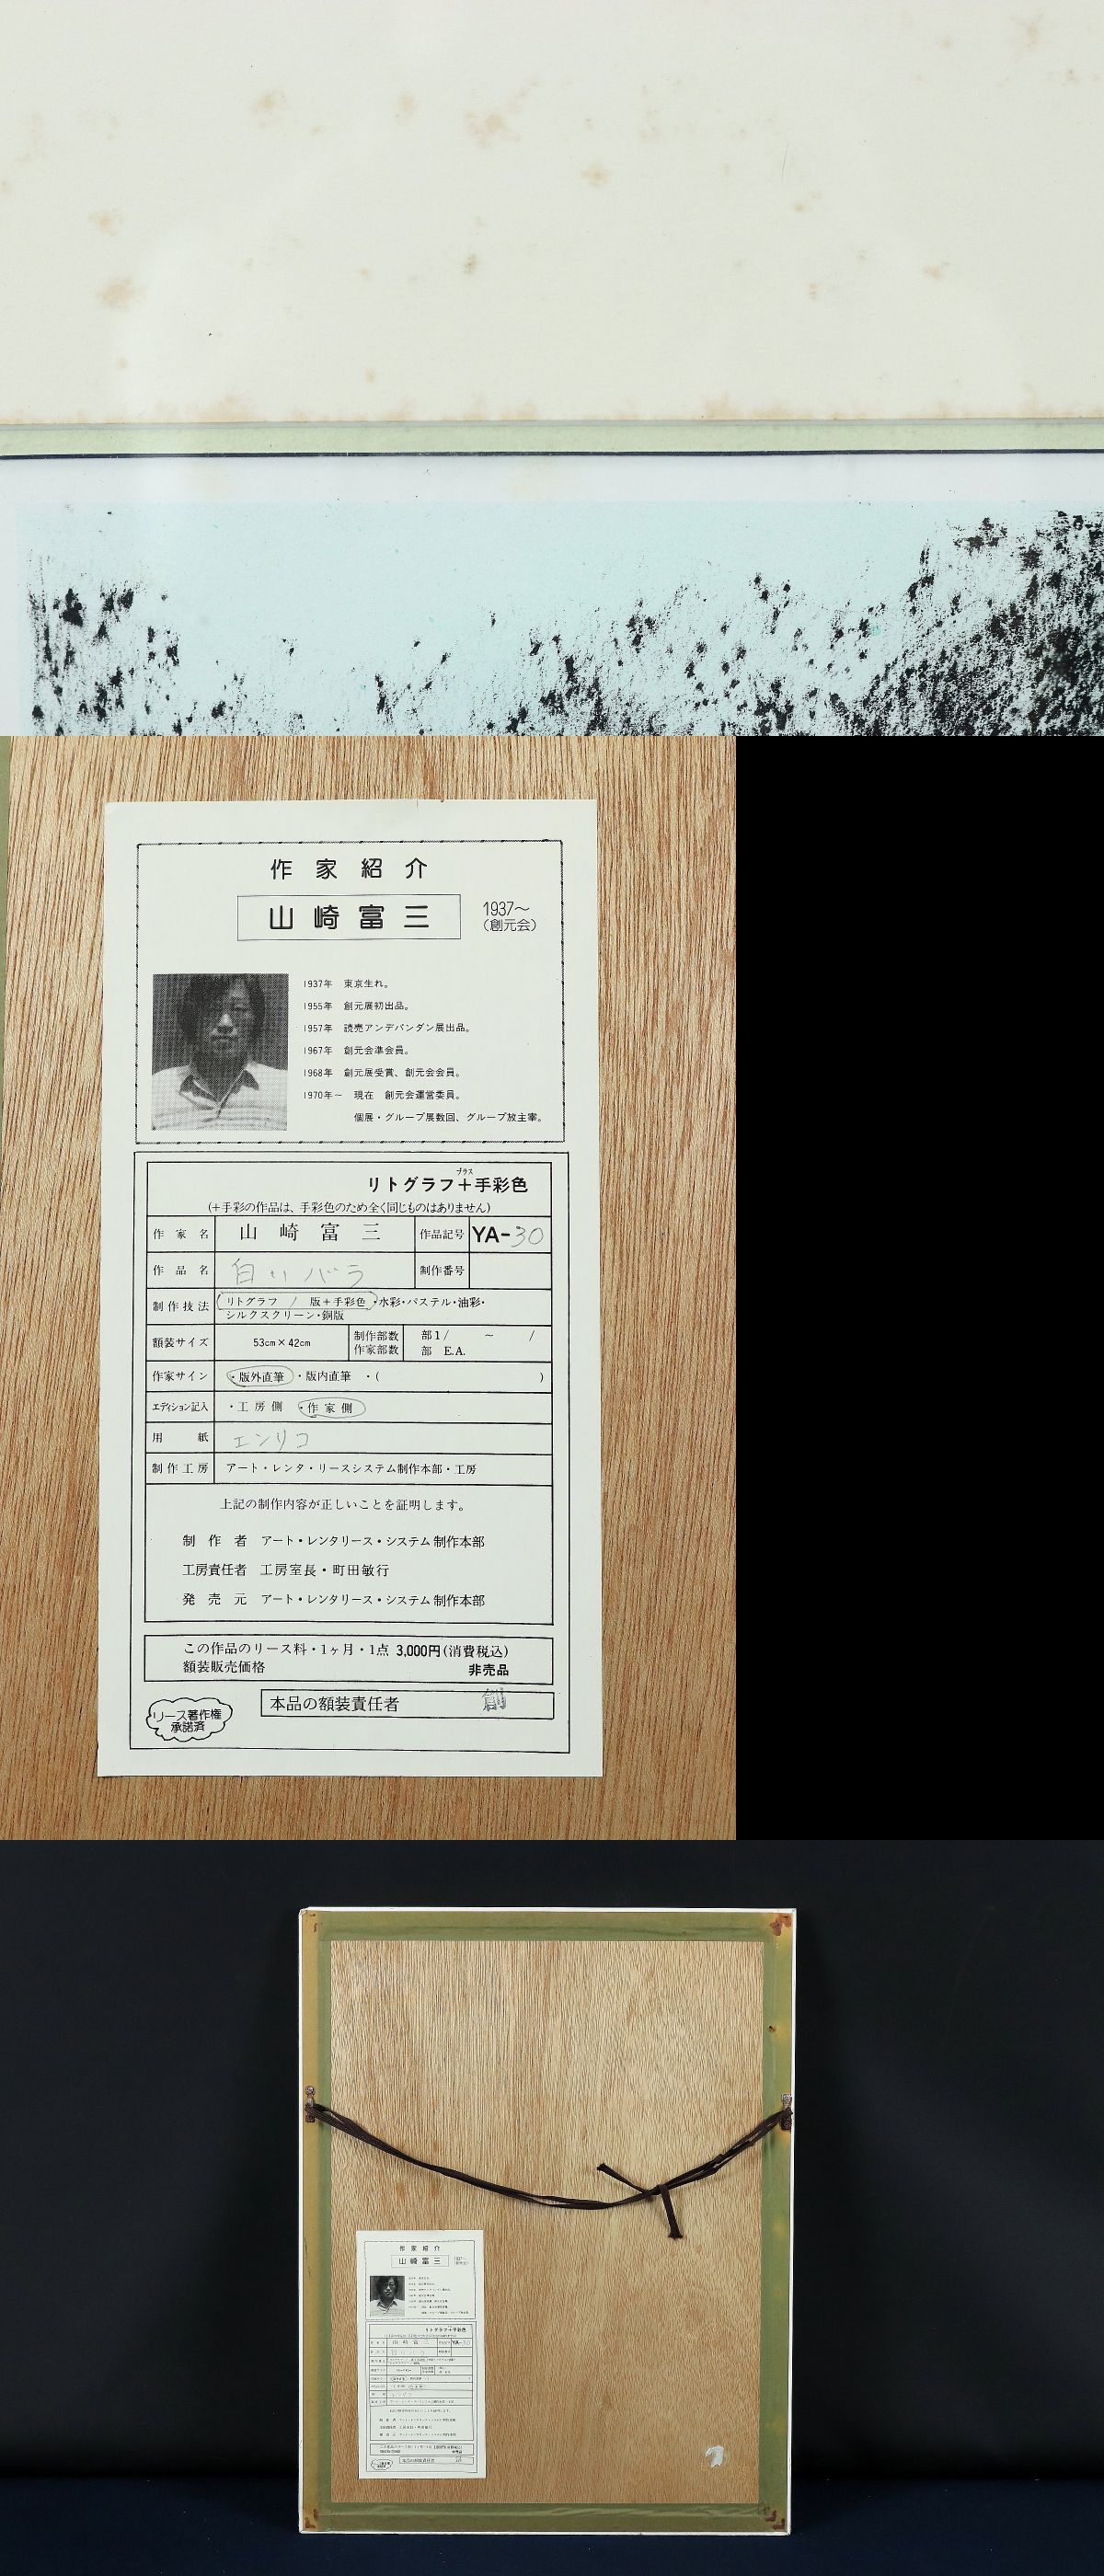 作家紹介
山崎富三
1937～
(創元会)
1937年 東京生れ。
1955年 創元展初出品。
1957年 読売アンデパンダン展出品。
1967年 創元会準会員。
1968年 創元展受賞、創元会会員。
1970年～ 現在 創元会運営委員。
個展・グループ展数回、グループ放主宰。
プラス
リトグラフ＋手彩色
(＋手彩の作品は、手彩色のため全く同じものはありません)
作家名 山崎富三 作品記号 YA-30
作品名 白いバラ 制作番号
制作技法 リトグラフ / 版＋手彩色・水彩・パステル・油彩・
シルクスクリーン・銅版
額装サイズ 53cm×42cm 制作部数 部1/ ～ /
作家部数 部 E.A.
作家サイン ・版外直筆 ・版内直筆 ・( )
エディション記入 ・工房側 ・作家側
用紙 エンリコ
制作工房 アート・レンタ・リースシステム制作本部・工房
上記の制作内容が正しいことを証明します。
制作者 アート・レンタリース・システム制作本部
工房責任者 工房室長・町田敏行
発売元 アート・レンタリース・システム制作本部
この作品のリース料・1ヶ月・1点 3,000円(消費税込)
額装販売価格 非売品
リース著作権
承諾済
本品の額装責任者 創
作家紹介
山崎富三